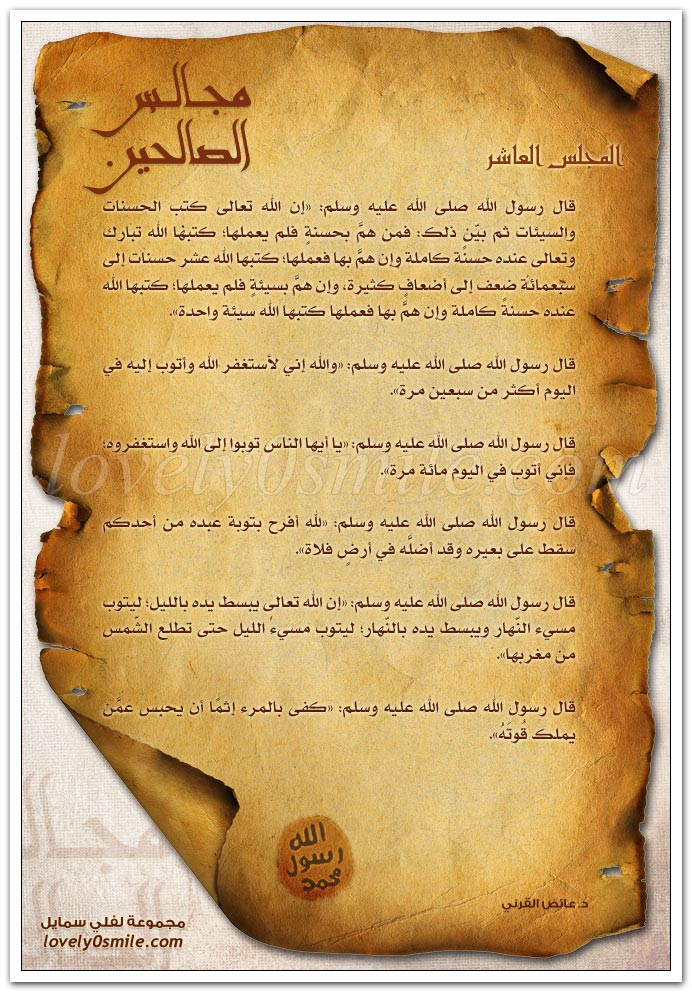 مجالس
الصالحين
المجلس العاشر
قال رسول الله صلى الله عليه وسلم: «إن الله تعالى كتب الحسنات
والسيئات ثم بيّن ذلك؛ فمن همَّ بحسنةٍ فلم يعملها؛ كتبها الله تبارك
وتعالى عنده حسنة كاملة وإن همَّ بها فعملها؛ كتبها الله عشر حسنات إلى
سبعمائة ضعف إلى أضعافٍ كثيرة، وإن همَّ بسيئةٍ فلم يعملها؛ كتبها الله
عنده حسنةً كاملة وإن همَّ بها فعملها كتبها الله سيئة واحدة».
قال رسول الله صلى الله عليه وسلم: «والله إني لأستغفر الله وأتوب إليه في
اليوم أكثر من سبعين مرة».
قال رسول الله صلى الله عليه وسلم: «يا أيها الناس توبوا إلى الله واستغفروه؛
فاني أتوب في اليوم مائة مرة».
lovely0smile.com
قال رسول الله صلى الله عليه وسلم: «لله أفرح بتوبة عبده من أحدكم
سقط على بعيره وقد أضلَّه في أرضٍ فلاة».
قال رسول الله صلى الله عليه وسلم: «إن الله تعالى يبسط يده بالليل؛ ليتوب
مسيء النّهار ويبسط يده بالنّهار؛ ليتوب مسيءُ الليل حتى تطلع الشّمس
من مغربها».
قال رسول الله صلى الله عليه وسلم: «كفى بالمرء إثمًا أن يحبس عمَّن
يملك قُوتَهُ».
الله
رسول
محمد
د.عائض القرني
مجموعة لفلي سمايل
lovely0smile.com